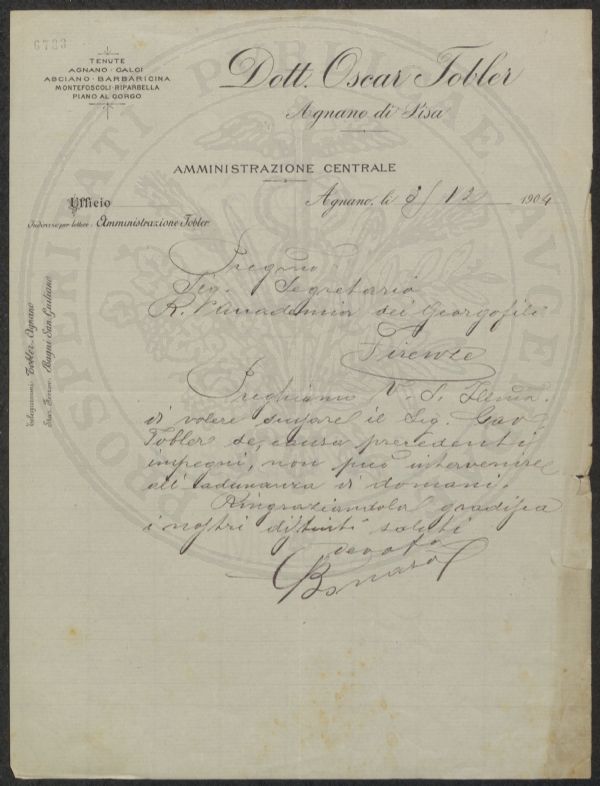 6723
TENUTE
AGNANO - CALCI
ASCIANO - BARBARICINA
MONTEFOSCOLI - RIPARBELLA
PIANO AL GORGO
Dott. Oscar Tobler
Agnano di Pisa
AMMINISTRAZIONE CENTRALE
Ufficio
Indirizzo per lettere: Amministrazione Tobler
Agnano, li 3/12 1904
Telegrammi: Tobler-Agnano
Staz. Ferrov. Bagni San Giuliano
Pregmo
Sig. Segretario
R. Accademia dei Georgofili
Firenze
Preghiamo V. S. Illma.
di volere scusare il Sig. Cav
Tobler se, causa precedenti
impegni, non può intervenire
all'adunanza di domani.
Ringraziandola gradisca
i nostri distinti saluti
devoto
PROSPERITATI PUBLICAE AUGENDAE